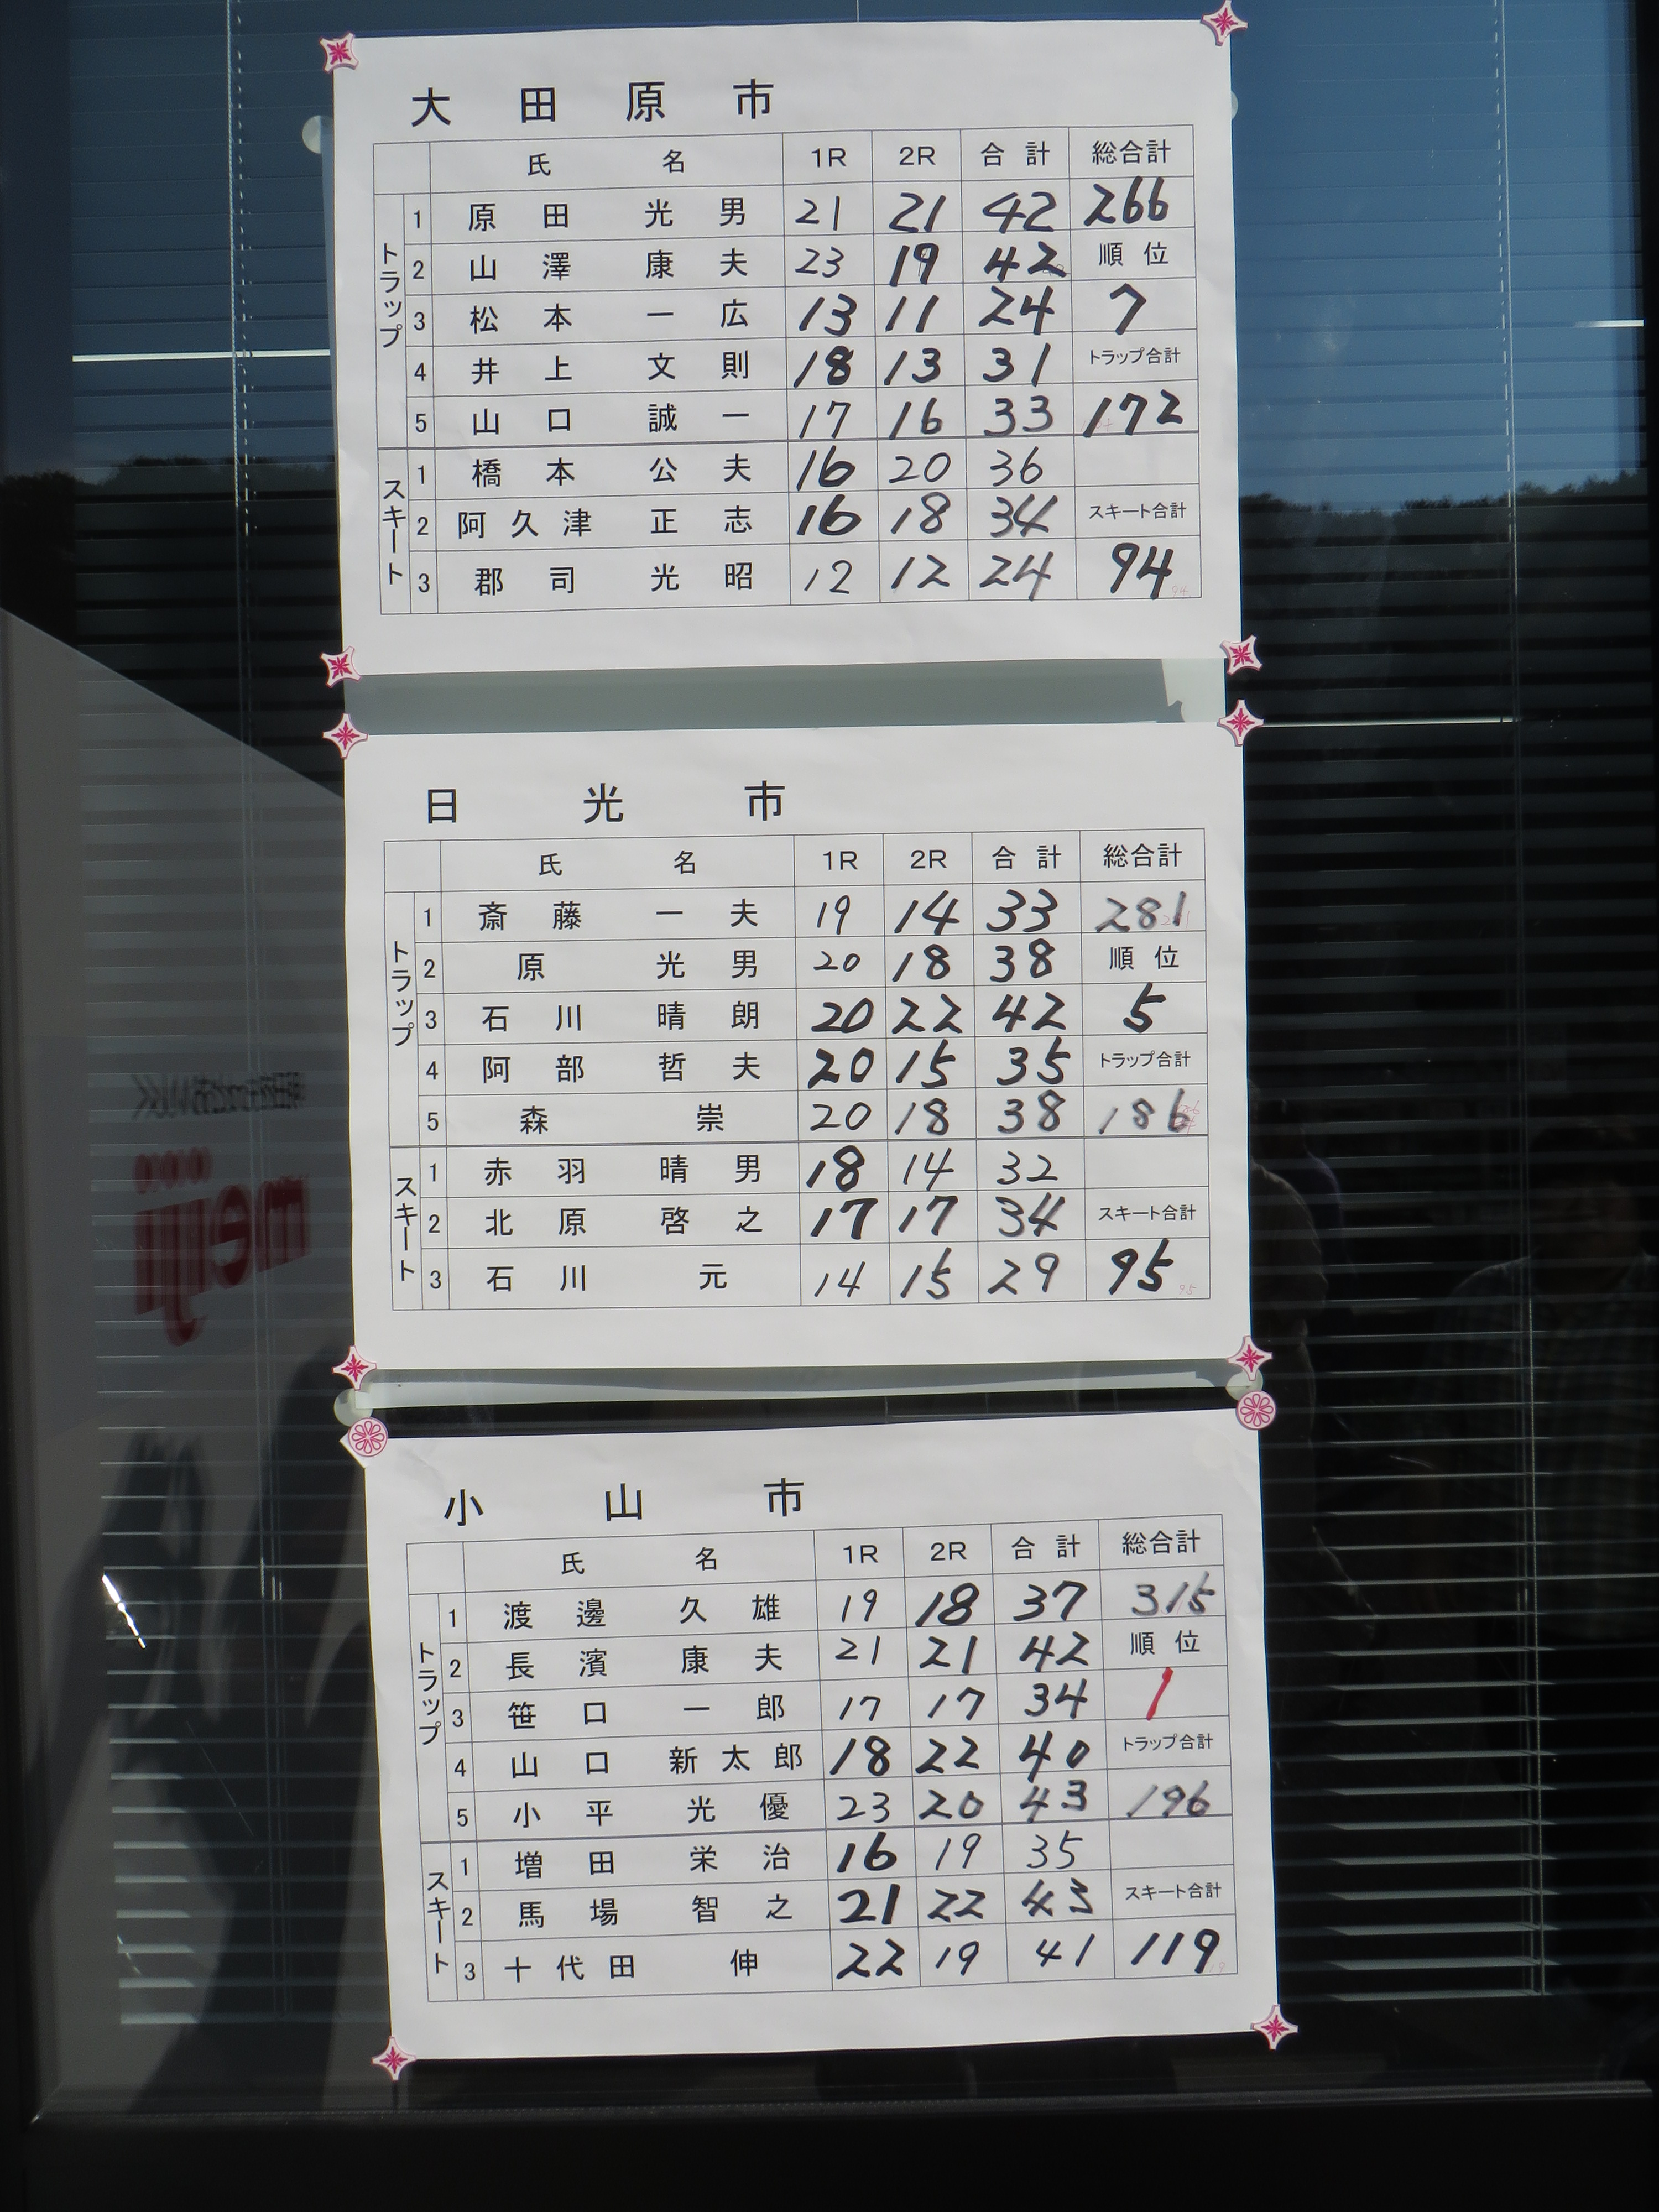 大田原市
氏名 1R 2R 合計 総合計
トラップ
1 原田 光男 21 21 42 266
2 山澤 康夫 23 19 42 順位
3 松本 一広 13 11 24 7
4 井上 文則 18 13 31 トラップ合計
5 山口 誠一 17 16 33 172
スキート
1 橋本 公夫 16 20 36
2 阿久津 正志 16 18 34 スキート合計
3 郡司 光昭 12 12 24 94
日光市
氏名 1R 2R 合計 総合計
トラップ
1 斎藤 一夫 19 14 33 281
2 原 光男 20 18 38 順位
3 石川 晴朗 20 22 42 5
4 阿部 哲夫 20 15 35 トラップ合計
5 森 崇 20 18 38 186
スキート
1 赤羽 晴男 18 14 32
2 北原 啓之 17 17 34 スキート合計
3 石川 元 14 15 29 95
小山市
氏名 1R 2R 合計 総合計
トラップ
1 渡邊 久雄 19 18 37 315
2 長濱 康夫 21 21 42 順位
3 笹口 一郎 17 17 34 1
4 山口 新太郎 18 22 40 トラップ合計
5 小平 光優 23 20 43 196
スキート
1 増田 栄治 16 19 35
2 馬場 智之 21 22 43 スキート合計
3 十代田 伸 22 19 41 119
meiji